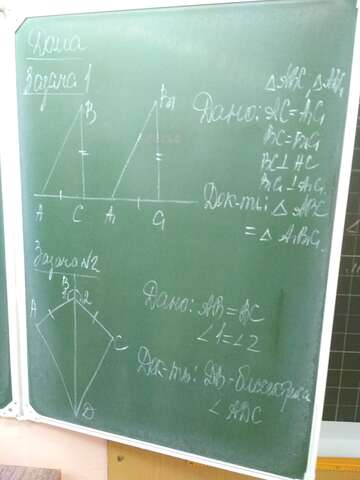 Дома
Задача 1
△ ABC, △ A₁B₁C₁
Дано: AC = A₁C₁
BC = B₁C₁
BC ⊥ AC
B₁C₁ ⊥ A₁C₁
Док-ть: △ ABC
= △ A₁B₁C₁
B
B₁
A
C
A₁
C₁
Задача №2
B
1
2
A
C
D
Дано: AB = BC
∠1 = ∠2
Док-ть: DB - биссектриса
∠ ADC